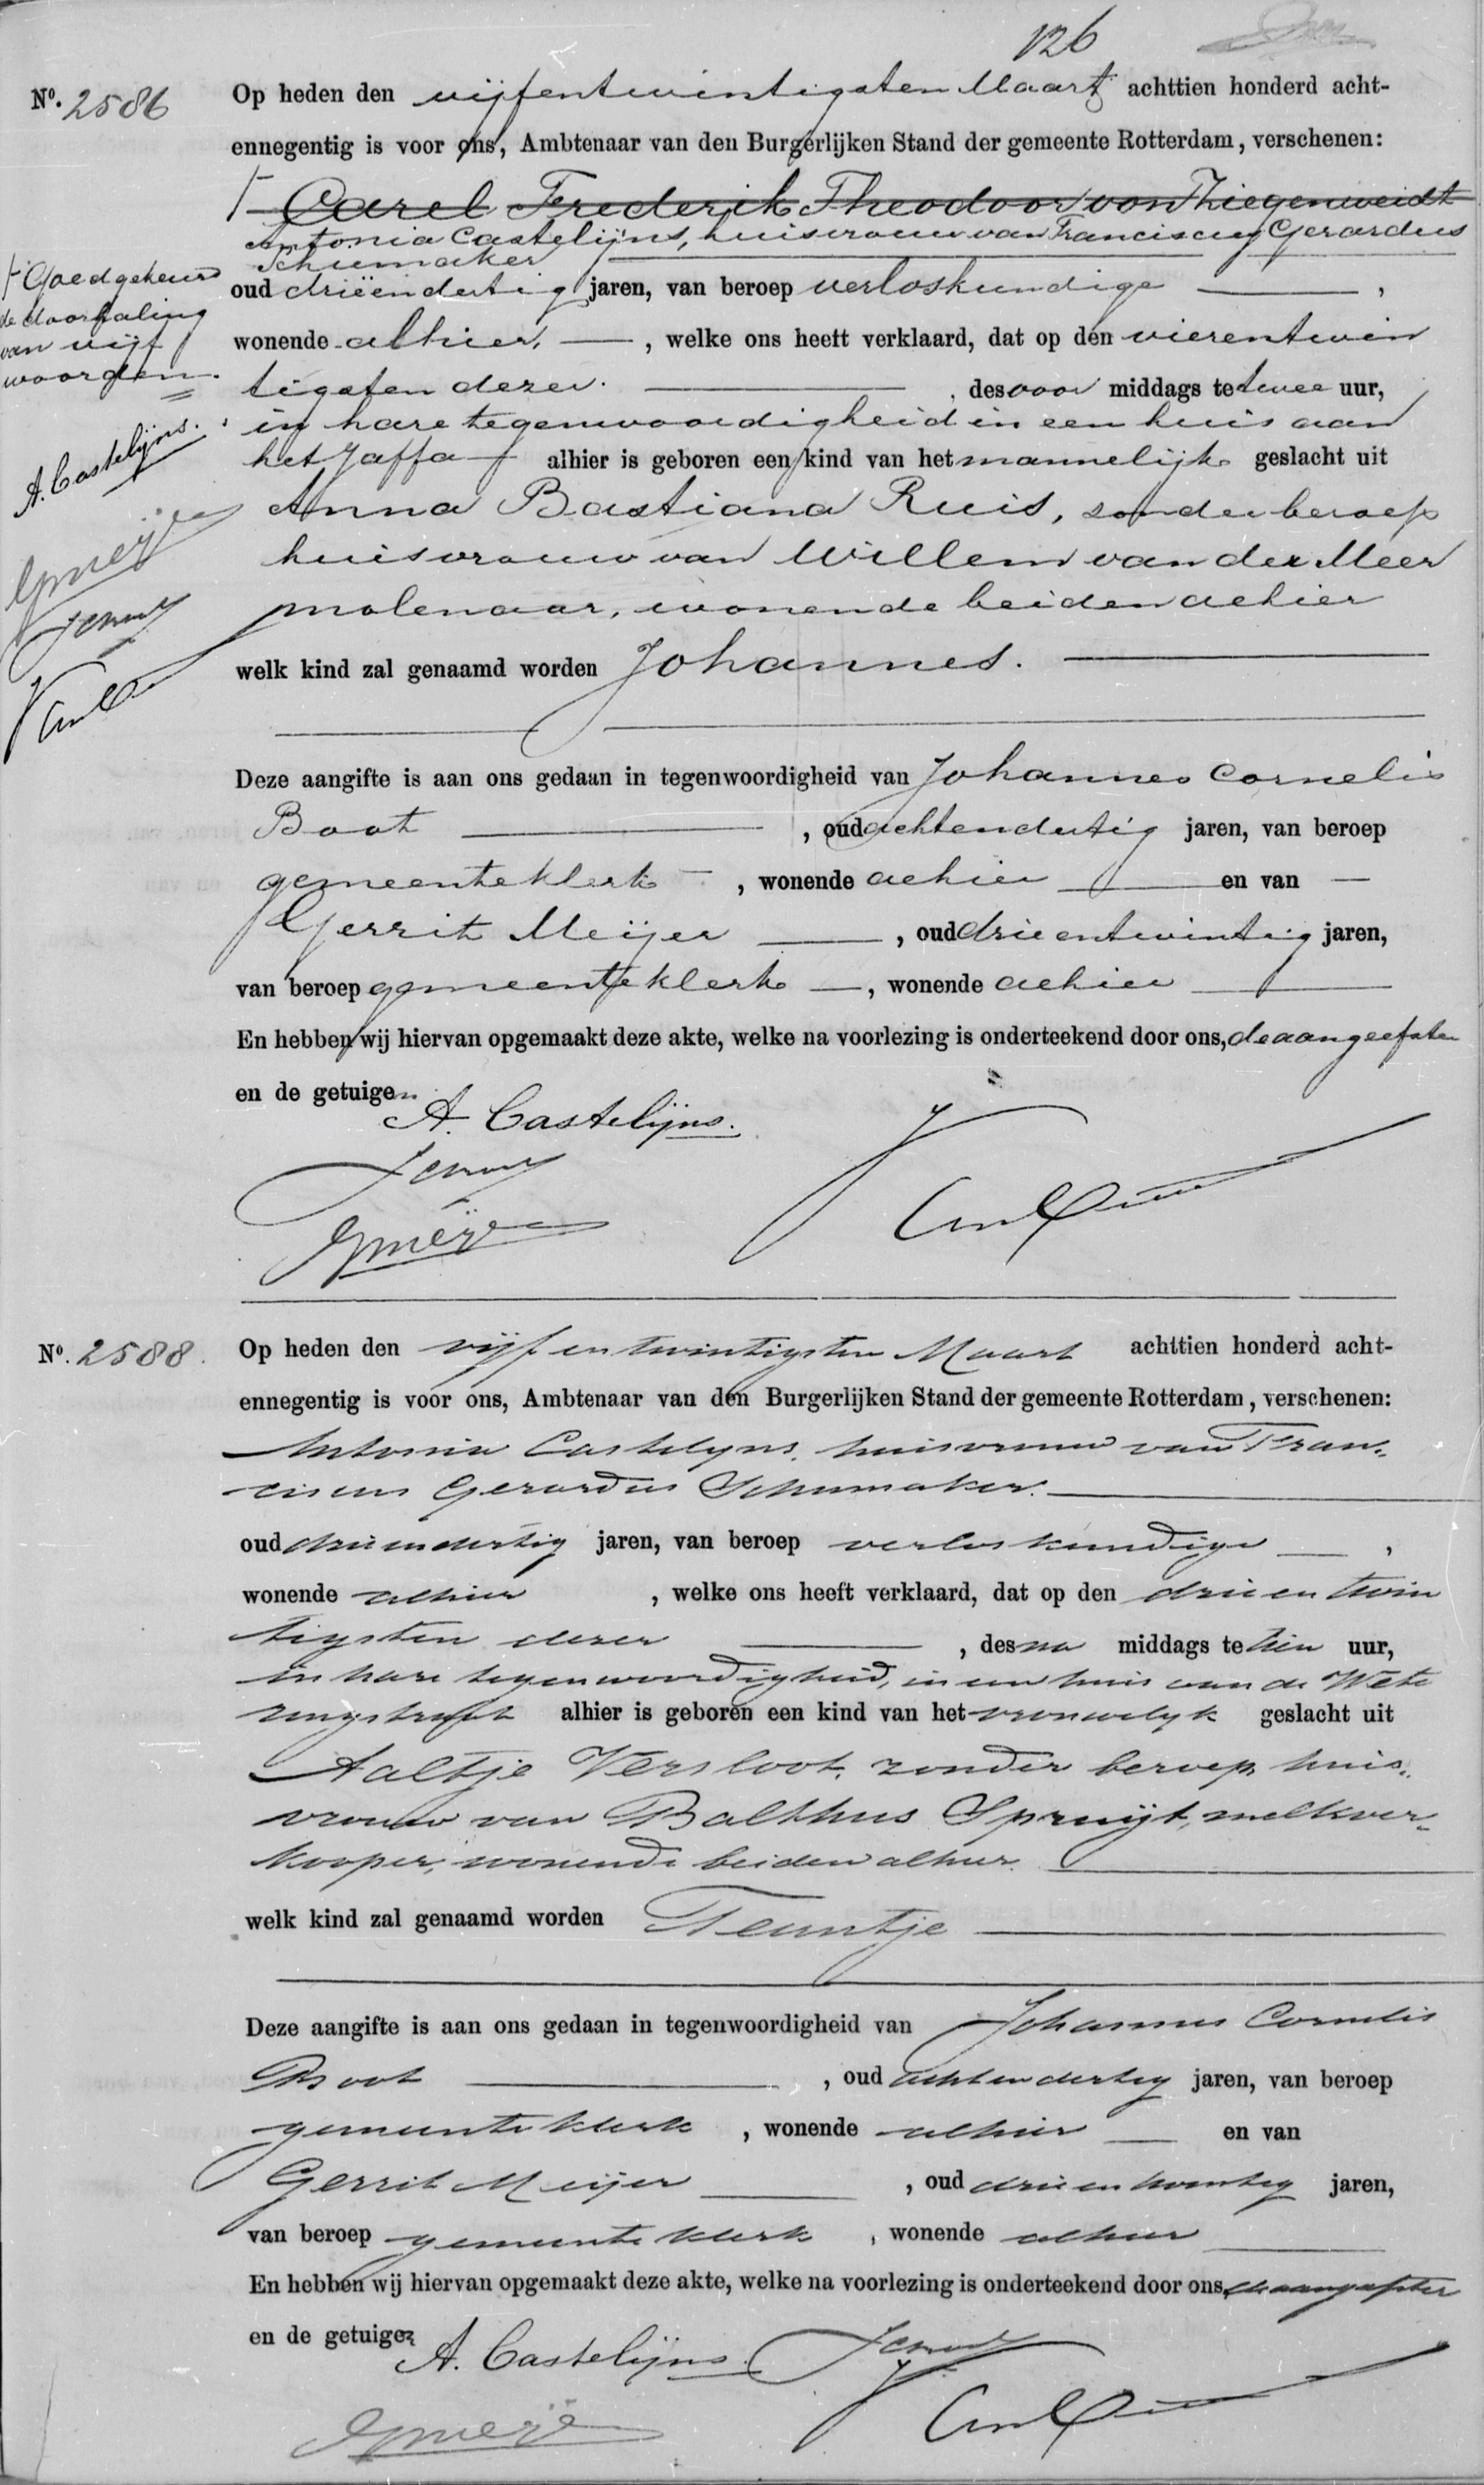 126
No. 2586
Op heden den vijfentwintigsten Maart achttien honderd acht-
ennegentig is voor ons, Ambtenaar van den Burgerlijken Stand der gemeente Rotterdam, verschenen:
Carel Frederik Theodoor von Ziegenweidt
Antonia Castelijns, huisvrouw van Franciscus Gerardus
Schumaker
oud drieëndertig jaren, van beroep verloskundige ,
wonende alhier, , welke ons heeft verklaard, dat op den vierentwin
tigsten dezer. , des voor middags te twee uur,
in hare tegenwoordigheid in een huis aan
het Jaffa alhier is geboren een kind van het mannelijk geslacht uit
Anna Bastiana Ruis, zonder beroep
huisvrouw van Willem van der Meer
molenaar, wonende beiden alhier
welk kind zal genaamd worden Johannes.
Goedgekeurd
de doorhaling
van vijf
woorden.
A. Castelijns.
GMeijer
Deze aangifte is aan ons gedaan in tegenwoordigheid van Johannes Cornelis
Boot , oud achtendertig jaren, van beroep
gemeenteklerk , wonende alhier en van
Gerrit Meijer , oud drieentwintig jaren,
van beroep gemeenteklerk , wonende alhier
En hebben wij hiervan opgemaakt deze akte, welke na voorlezing is onderteekend door ons, de aangeefster
en de getuigen.
A. Castelijns.
GMeijer
No. 2588.
Op heden den vijfentwintigsten Maart achttien honderd acht-
ennegentig is voor ons, Ambtenaar van den Burgerlijken Stand der gemeente Rotterdam, verschenen:
Antonia Castelyns, huisvrouw van Fran-
ciscus Gerardus Schumaker.
oud drieendertig jaren, van beroep verloskundige ,
wonende alhier , welke ons heeft verklaard, dat op den drieentwin
tigsten dezer , des na middags te tien uur,
in hare tegenwoordigheid, in een huis aan de Wete
ringstraat alhier is geboren een kind van het vrouwelyk geslacht uit
Aaltje Versloot, zonder beroep, huis-
vrouw van Balthus Spruijt, melkver-
kooper, wonende beiden alhier.
welk kind zal genaamd worden Teuntje
Deze aangifte is aan ons gedaan in tegenwoordigheid van Johannes Cornelis
Boot , oud achtendertig jaren, van beroep
gemeenteklerk , wonende alhier en van
Gerrit Meijer , oud drieentwintig jaren,
van beroep gemeenteklerk , wonende alhier
En hebben wij hiervan opgemaakt deze akte, welke na voorlezing is onderteekend door ons, de aangeefster
en de getuigen
A. Castelijns.
GMeijer